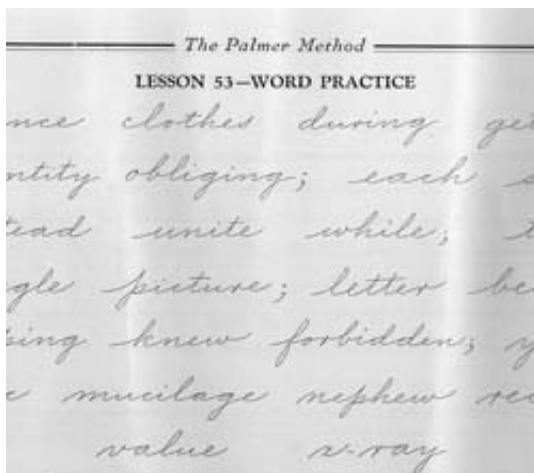 The Palmer Method
LESSON 53—WORD PRACTICE
nce clothes during get
ntity obliging; each s
tead unite while; t
gle picture; letter be
sing knew forbidden; y
c mucilage nephew rec
value x-ray